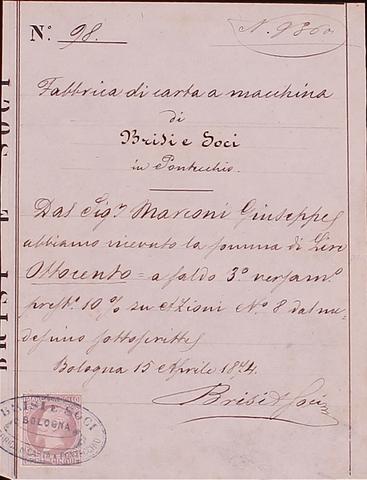 N.º 98.
N. 9360
Fabbrica di carta a macchina
di
Brisi e Soci
in Pontecchio.
Dal Sigr. Marconi Giuseppe
abbiamo ricevuto la somma di Lire
Ottocento = a saldo 3º versamº.
10 % su Azioni Nº 8 dal me-
desimo sottoscritte
Bologna 15 Aprile 1874.
Brisi & Soci
BRISI E SOCI
BOLOGNA
BRISI E SOCI